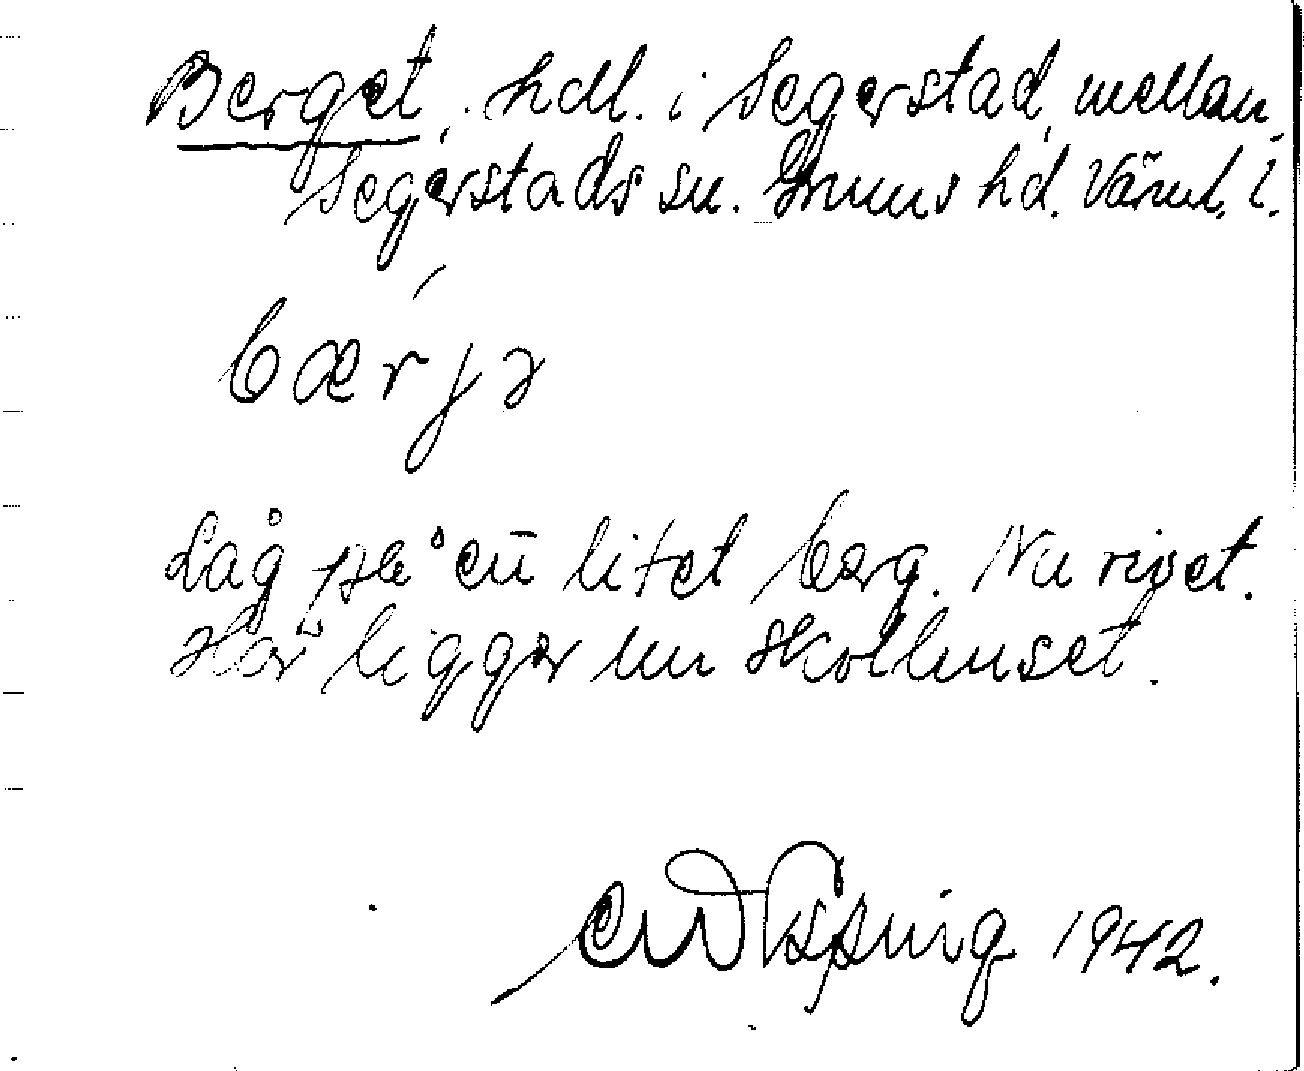 Berget, hdl. i Segerstad, mellan,
Segerstads sn. Grums hd. Värml. l.
bærjə
Låg på ett litet berg. Nu rivet.
Här ligger nu skolhuset.
1942.